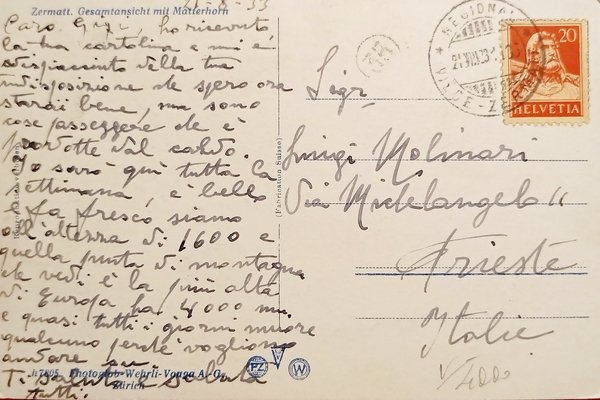 Zermatt. Gesamtansicht mit Matterhorn
21-8-33
Caro Gigi, ho ricevuto
la tua cartolina e mi è
dispiaciuto della tua
indisposizione che spero ora
starai bene, ma sono
cose passeggere che è
prodotte dal caldo.
Io sarò qui tutta la
settimana, è bello
fa fresco siamo
all'altezza di 1600 e
quella punta di montagna
che vedi è la più alta
di Europa ha 4000 mi.
e quasi tutti i giorni muore
qualcuno perchè vogliono
andare su
Ti saluta e saluta
tutti.
(Fabrication Suisse)
Photoglob-Wehrli-Vouga A.-G.
Zürich
PZ
W
20
HELVETIA
Sigr
Luigi Molinari
Via Michelangelo "
Trieste
Italie